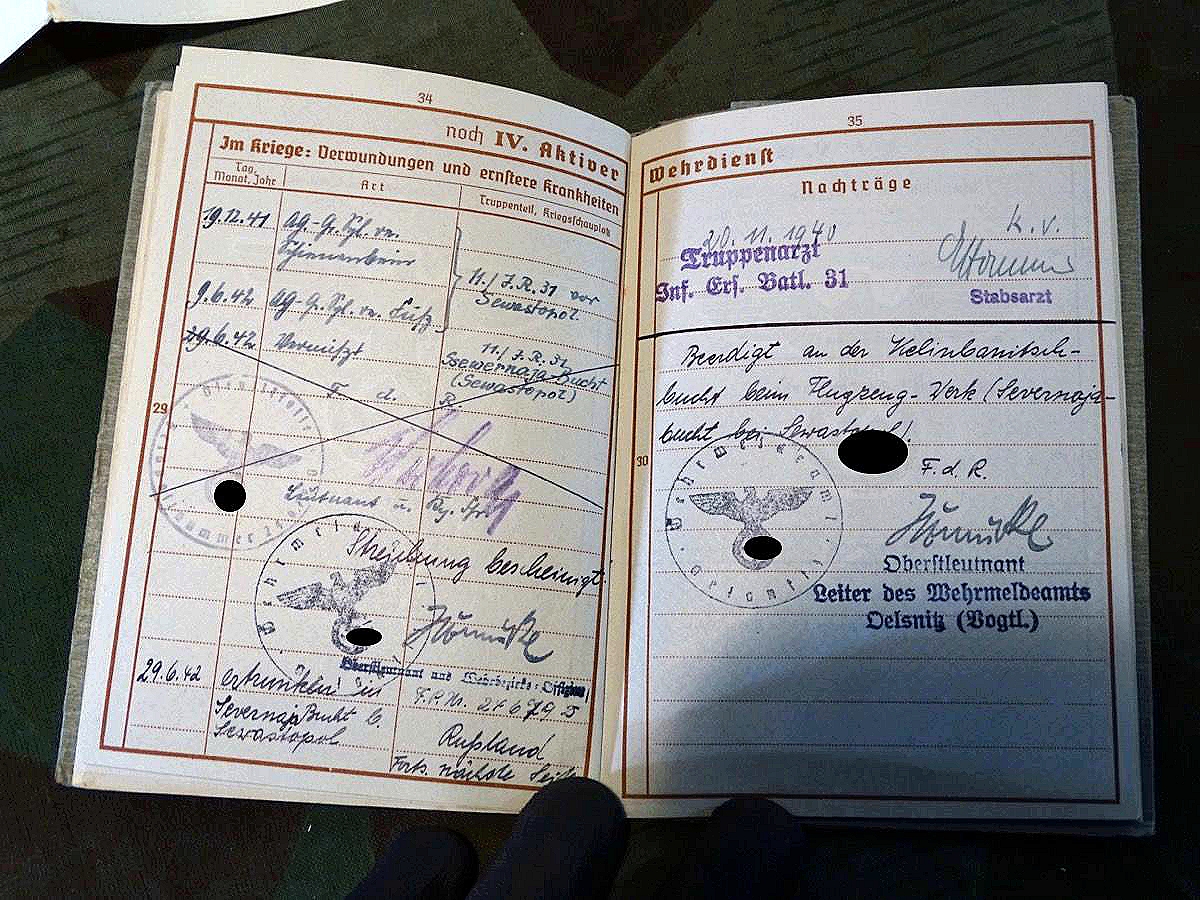 34
noch IV. Aktiver
Im Kriege: Verwundungen und ernstere Krankheiten
Tag, Monat, Jahr
Art
Truppenteil, Kriegsschauplatz
19.12.41
AG-G.Spl. re.
Schienenbein
11./J.R.31 vor
Sewastopol
9.6.42
AG-G.Spl. re. Fuß
29.6.42
Vermißt
11./J.R.31
Ssewernaja-Bucht
(Sewastopol)
F. d. R.
29
Leutnant u.
Streichung bescheinigt
Oberstleutnant und Wehrbezirks-Offizier
29.6.42
ertrunken in
Severnaja Bucht b.
Sewastopol
F.P.Nr.
Rußland
Forts. nächste Seite
35
Wehrdienst
Nachträge
20.11.1940
k.v.
Truppenarzt
Inf. Ers. Batl. 31
Stabsarzt
Beerdigt an der
bucht beim Flugzeug-Werk (Severnaja-
bucht bei Sewastopol).
30
F.d.R.
Oberstleutnant
Leiter des Wehrmeldeamts
Oelsnitz (Vogtl.)